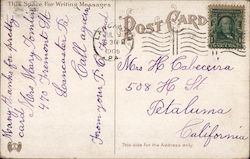 This Space For Writing Messages
POST CARD
Many thanks for pretty
card
Mrs Mary
470 Fremont St
Lancaster Pa
Call again
From your P.C. Friend
LANCASTER
1906
PA.
Mrs H Cabeceira
508 H St
Petaluma
California
This side for the Address only.